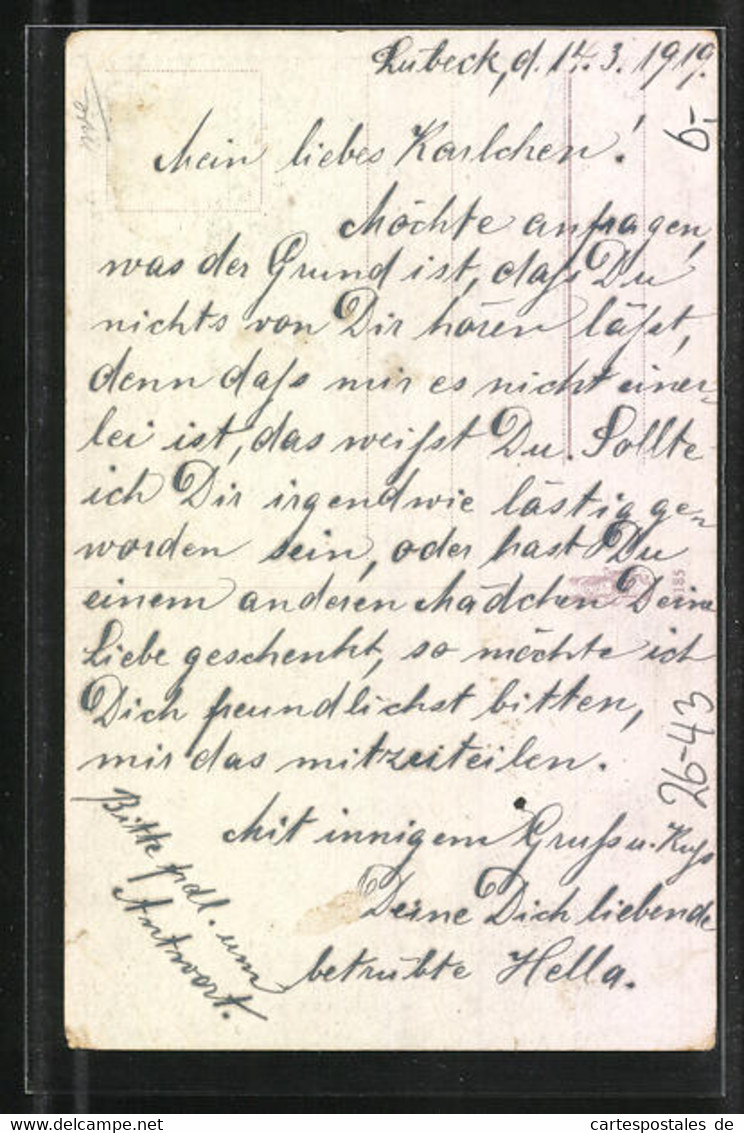 Lübeck, d. 14.3.1919.
Mein liebes Karlchen!
Möchte anfragen,
was der Grund ist, daß Du
nichts von Dir hören läßt,
denn daß mir es nicht einer-
lei ist, das weißt Du. Sollte
ich Dir irgendwie lästig ge-
worden sein, oder hast Du
einem anderen Mädchen Deine
Liebe geschenkt, so möchte ich
Dich freundlichst bitten,
mir das mitzuteilen.
Mit innigem Gruß u. Kuß
Deine Dich liebende
betrübte Hella.
Bitte frdl. um
Antwort.
6,-
26-43
185
cartespostales de